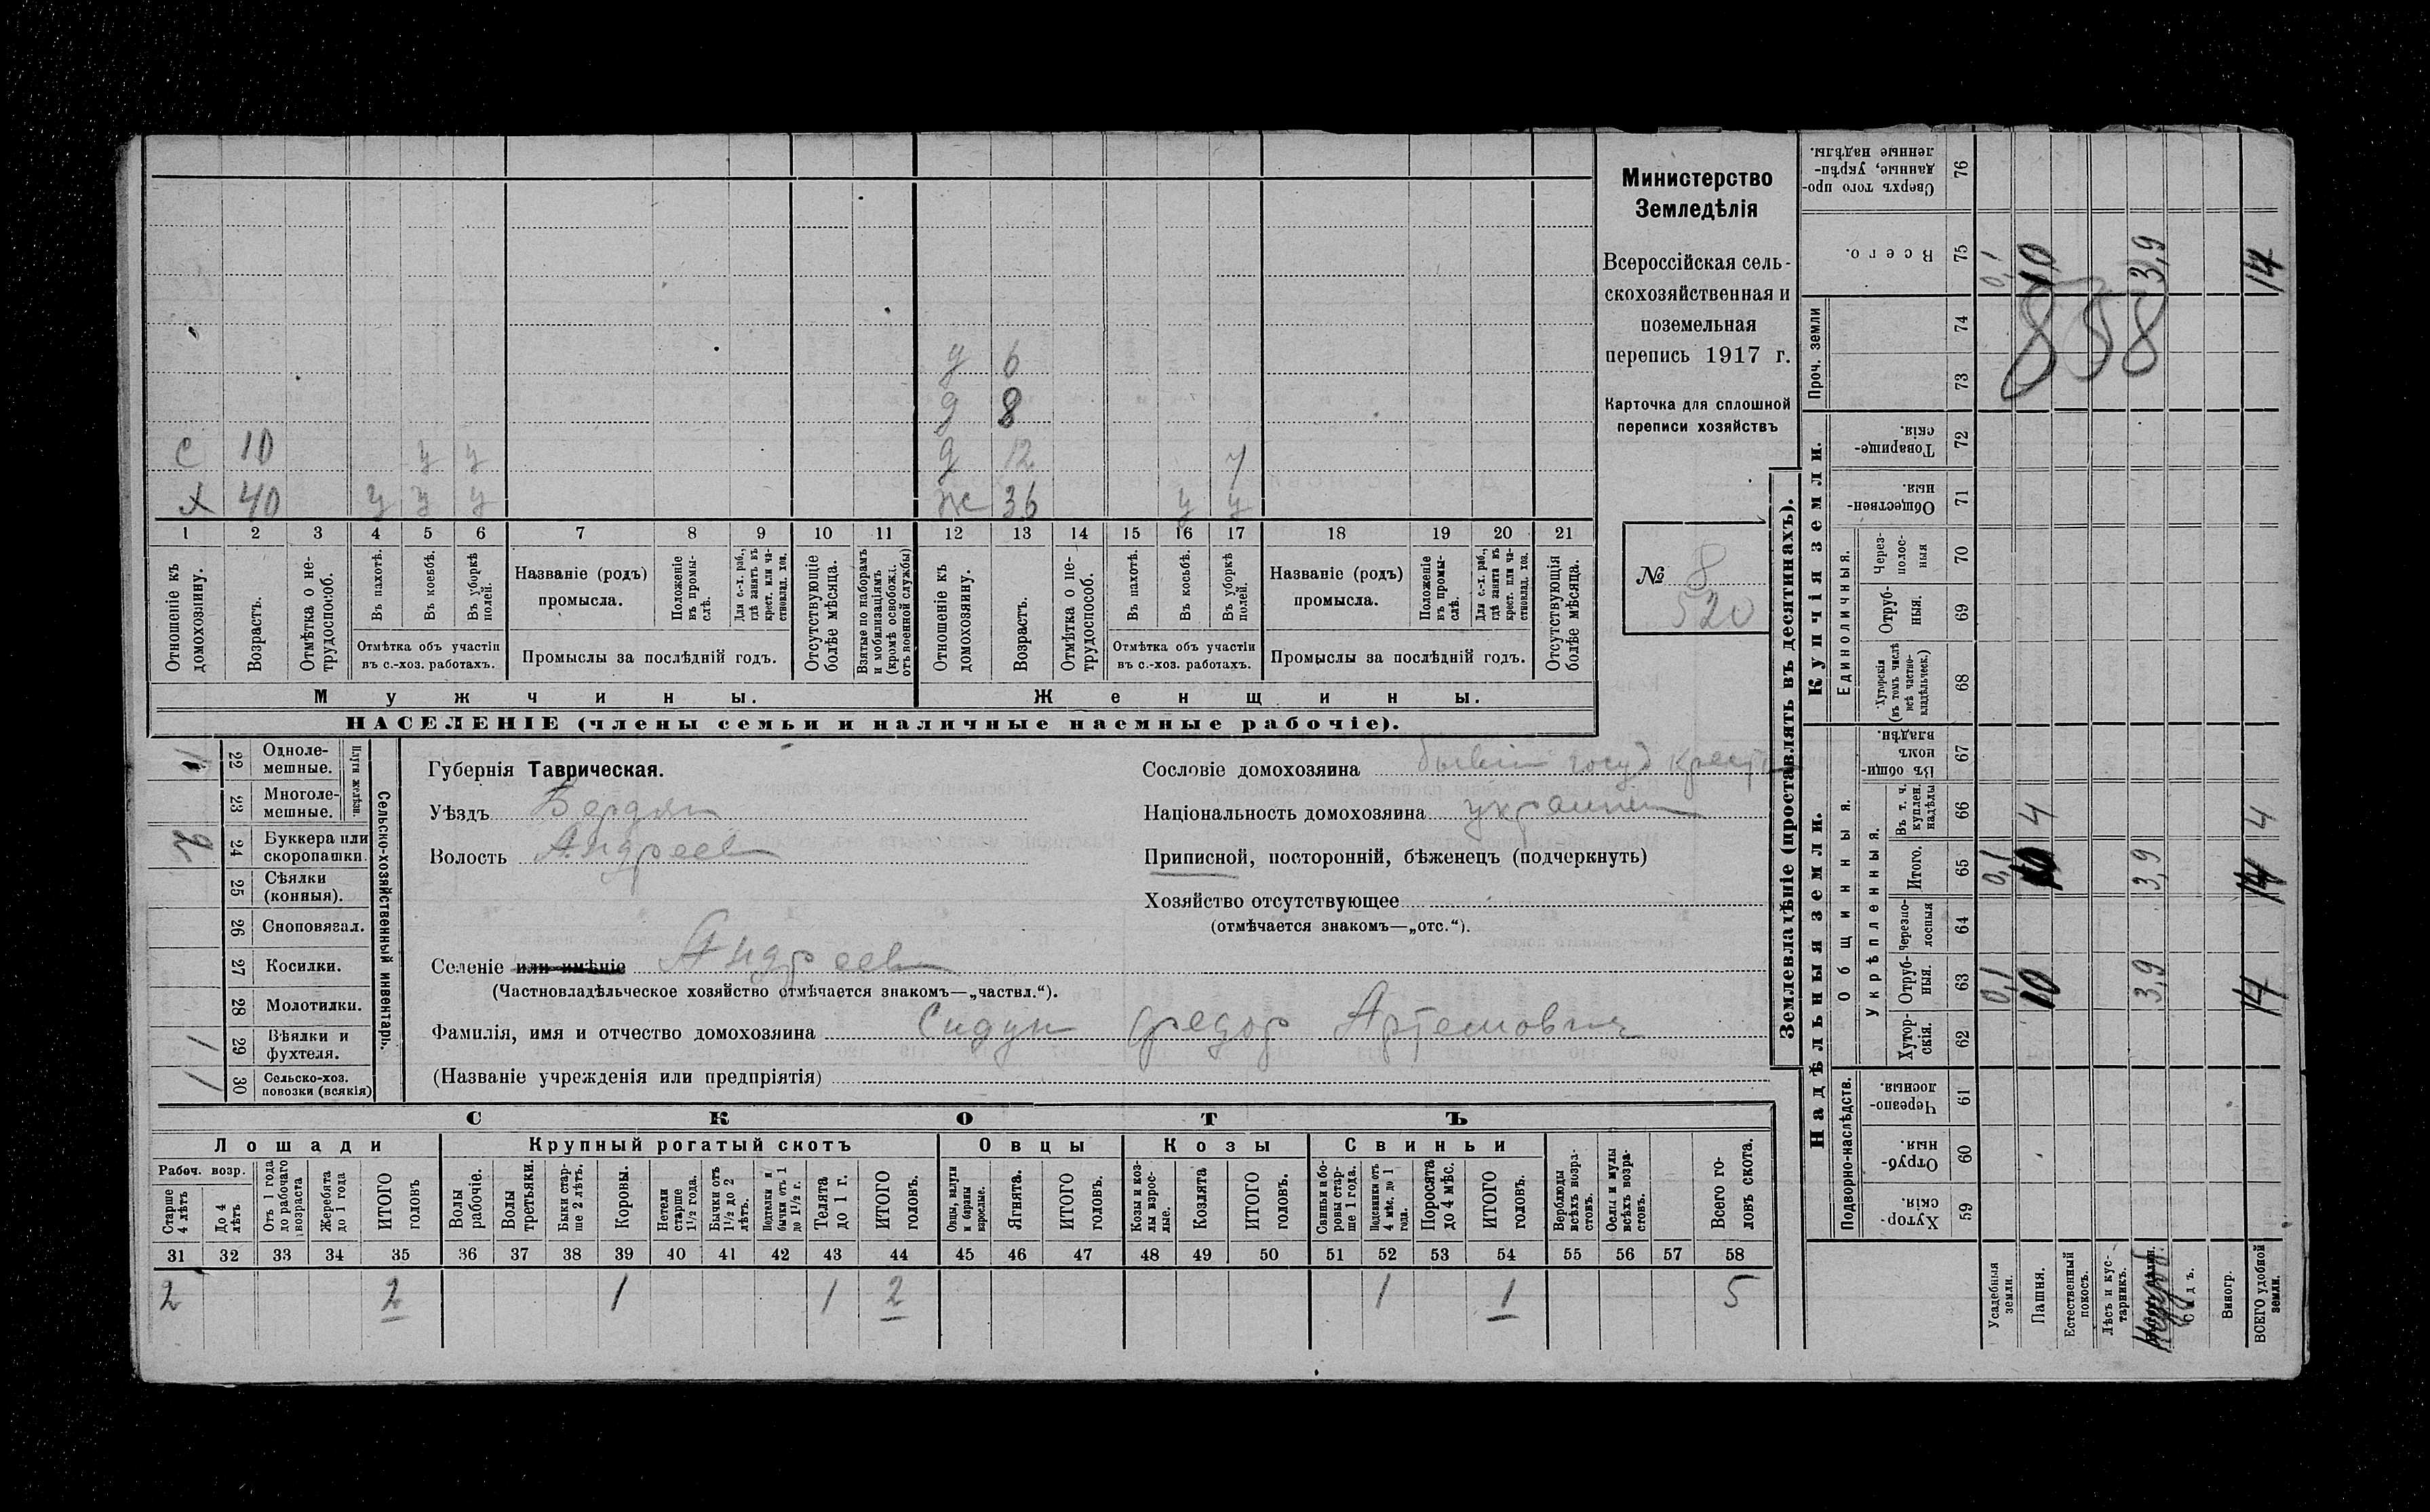 Министерство
Земледѣлія
Всероссійская сель-
скохозяйственная и
поземельная
перепись 1917 г.
Карточка для сплошной
переписи хозяйствъ
№ 8
520
д 6
д 8
с 10 у у д 12 у
х 40 у у у ж 36 у у
1 2 3 4 5 6 7 8 9 10 11 12 13 14 15 16 17 18 19 20 21
Отношеніе къ домохозяину.
Возрастъ.
Отмѣтка о не-трудоспособ.
Въ пахотѣ.
Въ косьбѣ.
Въ уборкѣ полей.
Отмѣтка объ участіи
въ с.-хоз. работахъ.
Названіе (родъ)
промысла.
Положеніе въ промы-слѣ.
Для с.-х. раб., гдѣ занятъ въ крест. или ча-стновлад. хоз.
Промыслы за послѣдній годъ.
Отсутствующіе болѣе мѣсяца.
Взятые по наборамъ и мобилизаціямъ (кромѣ освобожд. отъ военной службы)
Отношеніе къ домохозяину.
Возрастъ.
Отмѣтка о не-трудоспособ.
Въ пахотѣ.
Въ косьбѣ.
Въ уборкѣ полей.
Отмѣтка объ участіи
въ с.-хоз. работахъ.
Названіе (родъ)
промысла.
Положеніе въ промы-слѣ.
Для с.-х. раб., гдѣ занята въ крест. или ча-стновлад. хоз.
Промыслы за послѣдній годъ.
Отсутствующія болѣе мѣсяца.
Мужчины.
Женщины.
НАСЕЛЕНІЕ (члены семьи и наличные наемные рабочіе).
Сельско-хозяйственный инвентарь.
Плуги желѣзн.
22 Одноле-мешные.
23 Многоле-мешные.
24 Буккера или скоропашки.
25 Сѣялки (конныя).
26 Сноповязал.
27 Косилки.
28 Молотилки.
1 29 Вѣялки и фухтеля.
1 30 Сельско-хоз. повозки (всякія)
Губернія Таврическая.
Уѣздъ Бердян
Волость Андреев
Селеніе или имѣніе Андреев
(Частновладѣльческое хозяйство отмѣчается знакомъ—„частвл.“).
Фамилія, имя и отчество домохозяина Сидун Федор Артемович
(Названіе учрежденія или предпріятія)
Сословіе домохозяина бывш госуд крест
Національность домохозяина украинец
Приписной, посторонній, бѣженецъ (подчеркнуть)
Хозяйство отсутствующее
(отмѣчается знакомъ—„отс.“).
СКОТЪ
Лошади Крупный рогатый скотъ Овцы Козы Свиньи
Рабоч. возр.
Старше 4 лѣтъ
До 4 лѣтъ
Отъ 1 года до рабочаго возраста
Жеребята до 1 года
ИТОГО головъ
Волы рабочіе.
Волы третьяки.
Быки стар-ше 2 лѣтъ.
Коровы.
Нетели старше 1½ года.
Бычки отъ 1½ до 2 лѣтъ.
Подтелки и бычки отъ 1 до 1½ г.
Телята до 1 г.
ИТОГО головъ.
Овцы, валухи и бараны взрослые.
Ягнята.
ИТОГО головъ.
Козы и коз-лы взрос-лые.
Козлята
ИТОГО головъ.
Свиньи и бо-ровы стар-ше 1 года.
Подсвинки отъ 4 мѣс. до 1 года.
Поросята до 4 мѣс.
ИТОГО головъ.
Верблюды всѣхъ возра-стовъ.
Ослы и мулы всѣхъ возра-стовъ.
Всего го-ловъ скота.
31 32 33 34 35 36 37 38 39 40 41 42 43 44 45 46 47 48 49 50 51 52 53 54 55 56 57 58
2 2 1 1 2 1 1 5
Землевладѣніе (проставлять въ десятинахъ).
Надѣльныя земли.
Купчія земли.
Проч. земли
Подворно-наслѣдств.
Общинныя.
Укрѣпленныя.
Единоличныя.
Сверхъ того про-данные, укрѣп-ленные надѣлы. 76
Всего. 75 0,1 10 3,9 14
74
73
858
Товарище-скія. 72
Обществен-ныя. 71
Через-полос-ныя 70
Отруб-ныя. 69
Хуторскія (въ томъ числѣ всѣ частно-владѣльческ.) 68
Въ общин-номъ владѣн. 67
Въ т. ч. куплен. надѣлы 66 4 4
Итого. 65 0,1 10 3,9 14
Черезпо-лосныя 64
Отруб-ныя. 63 0,1 10 3,9 14
Хутор-скія. 62
Черезпо-лосныя. 61
Отруб-ныя. 60
Хутор-скія. 59
Усадебныя земли.
Пашня.
Естественный покосъ.
Лѣсъ и кус-тарникъ.
Садъ.
Виногр.
ВСЕГО удобной земли.